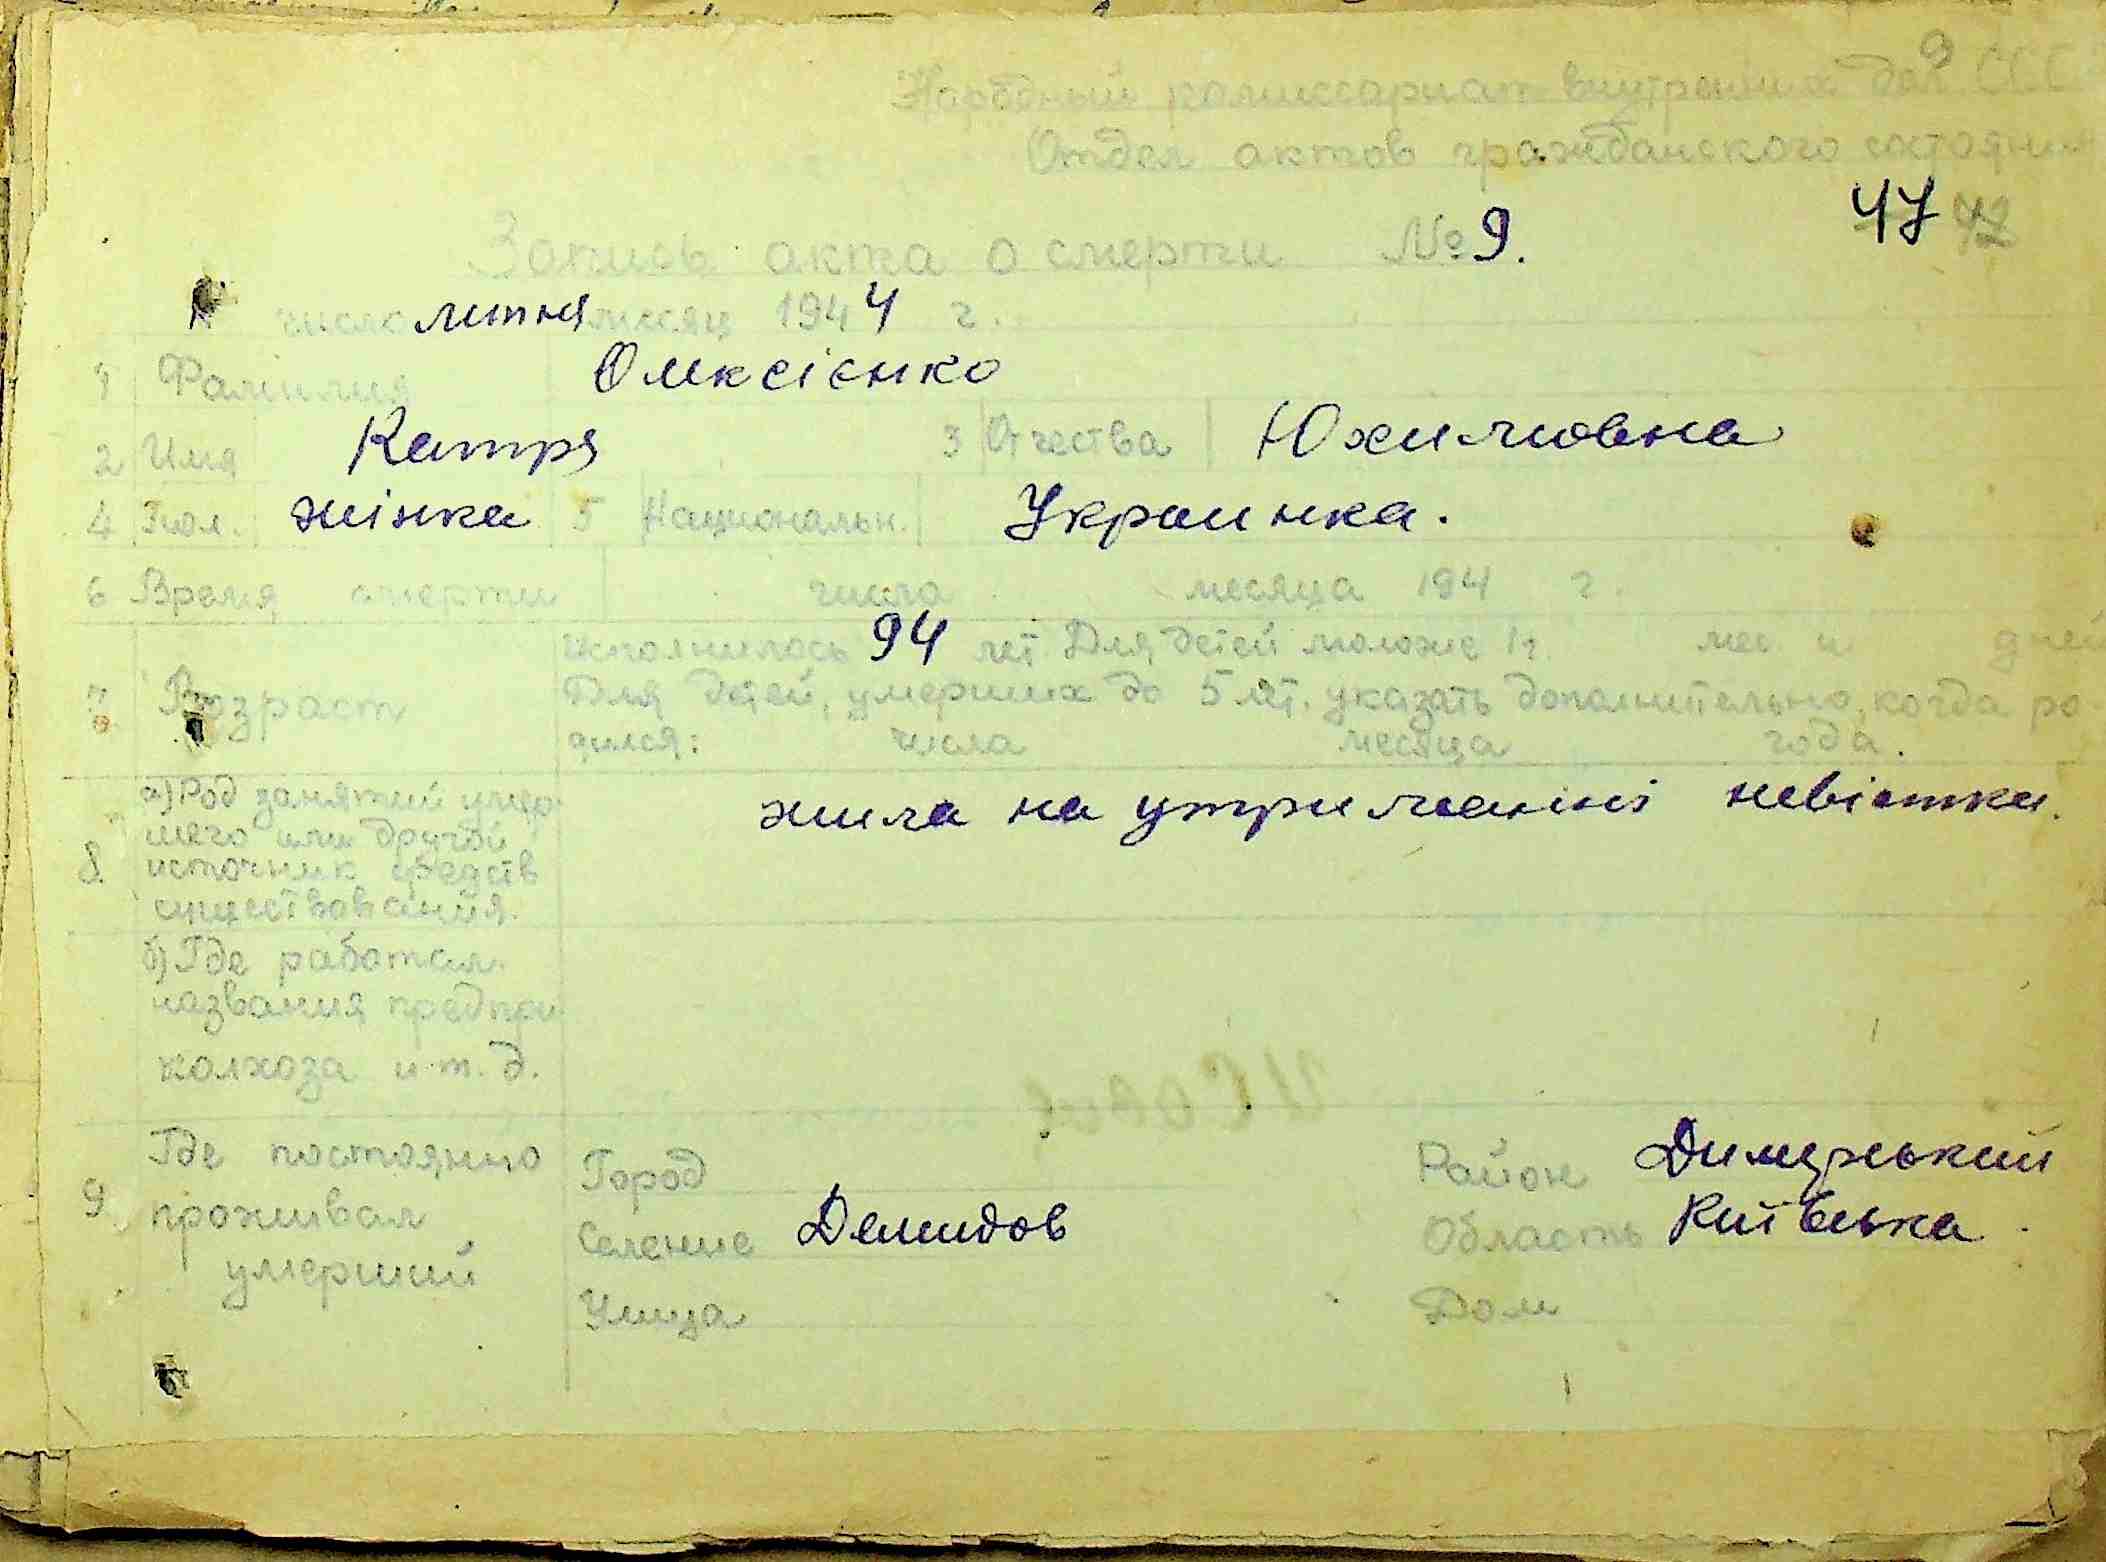 9
Народный комиссариат внутрених дел ССС
Отдел актов гражданского состояния
47 42
Запись акта о смерти № 9.
число липня месяц 1944 г.
1 Фамилия Олексієнко
2 Имя Катря 3 Отчества Юхимовна
4 Пол. жінка 5 Национальн. Украинка.
6 Время смерти числа месяца 194 г.
исполнилось 94 лет Для детей моложе 1 г. мес. и дней
7 Возраст Для детей, умерших до 5 лет. указать дополнительно, когда ро-
дился: числа месяца года.
8 а) Род занятий умер- жила на утриманні невістки.
шего или другой
источник средств
существования.
б) Где работал
названия предпри
колхоза и т. д.
9 Где постоянно проживал умерший
Город Район Димерський
Селение Демидов Область Київська.
Улица Дом